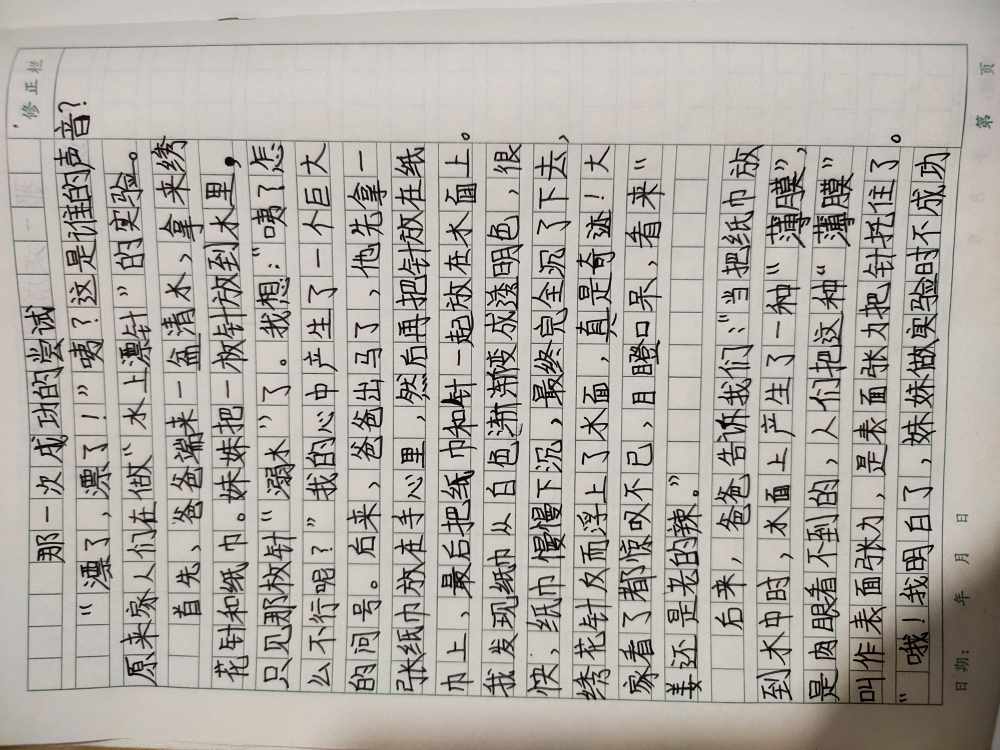 修正栏
那一次成功的尝试
“漂了，漂了！”咦？这是谁的声音？
原来家人们在做“水上漂针”的实验。
首先、爸爸端来一盆清水，拿来绣
花针和纸巾。妹妹把一枚针放到水里，
只见那枚针“溺水”了。我想：“咦？怎
么不行呢？”我的心中产生了一个巨大
的问号。后来，爸爸出马了，他先拿一
张纸巾放在手心里，然后再把针放在纸
巾上，最后把纸巾和针一起放在水面上。
我发现纸巾从白色渐渐变成透明色，很
快，纸巾慢慢下沉，最终完全沉了下去，
绣花针反而浮上了水面，真是奇迹！大
家看了都惊叹不已，目瞪口呆，看来“
姜还是老的辣。”
后来，爸爸告诉我们：“当把纸巾放
到水中时，水面上产生了一种“薄膜”，
是肉眼看不到的，人们把这种“薄膜”
叫作表面张力，是表面张力把针托住了。
“哦！我明白了，妹妹做实验时不成功
日期： 年 月 日
第 页